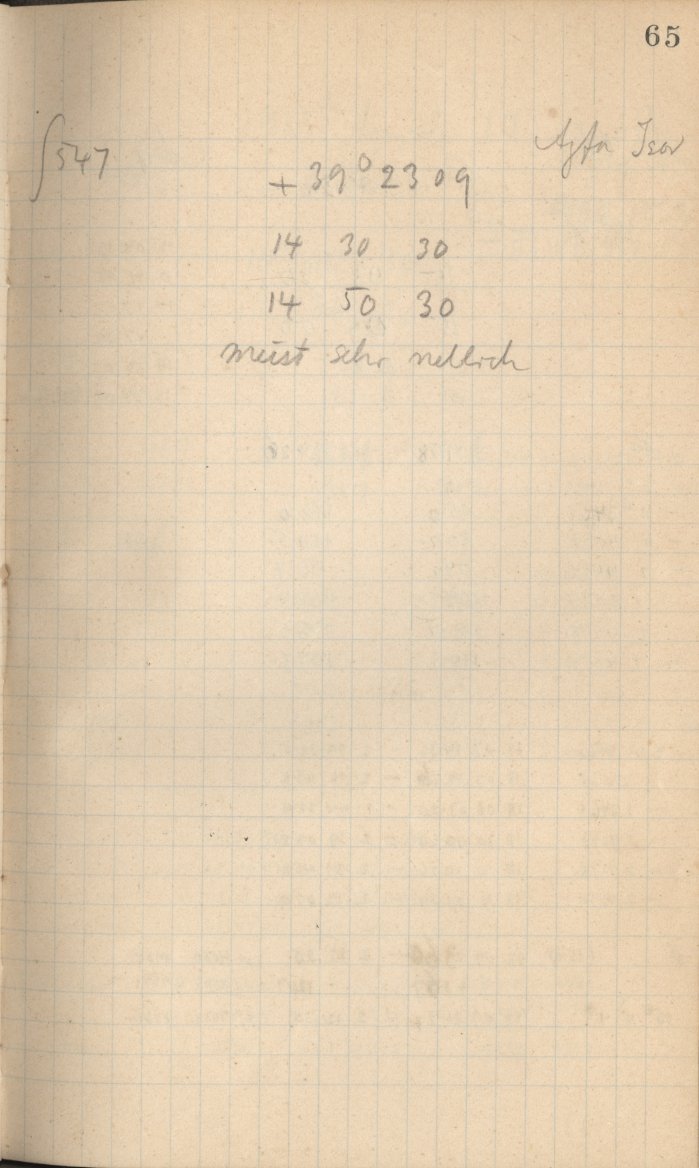 65
∫547
Agfa Isar
+ 39° 23 09
14 30 30
14 50 30
meist sehr neblich